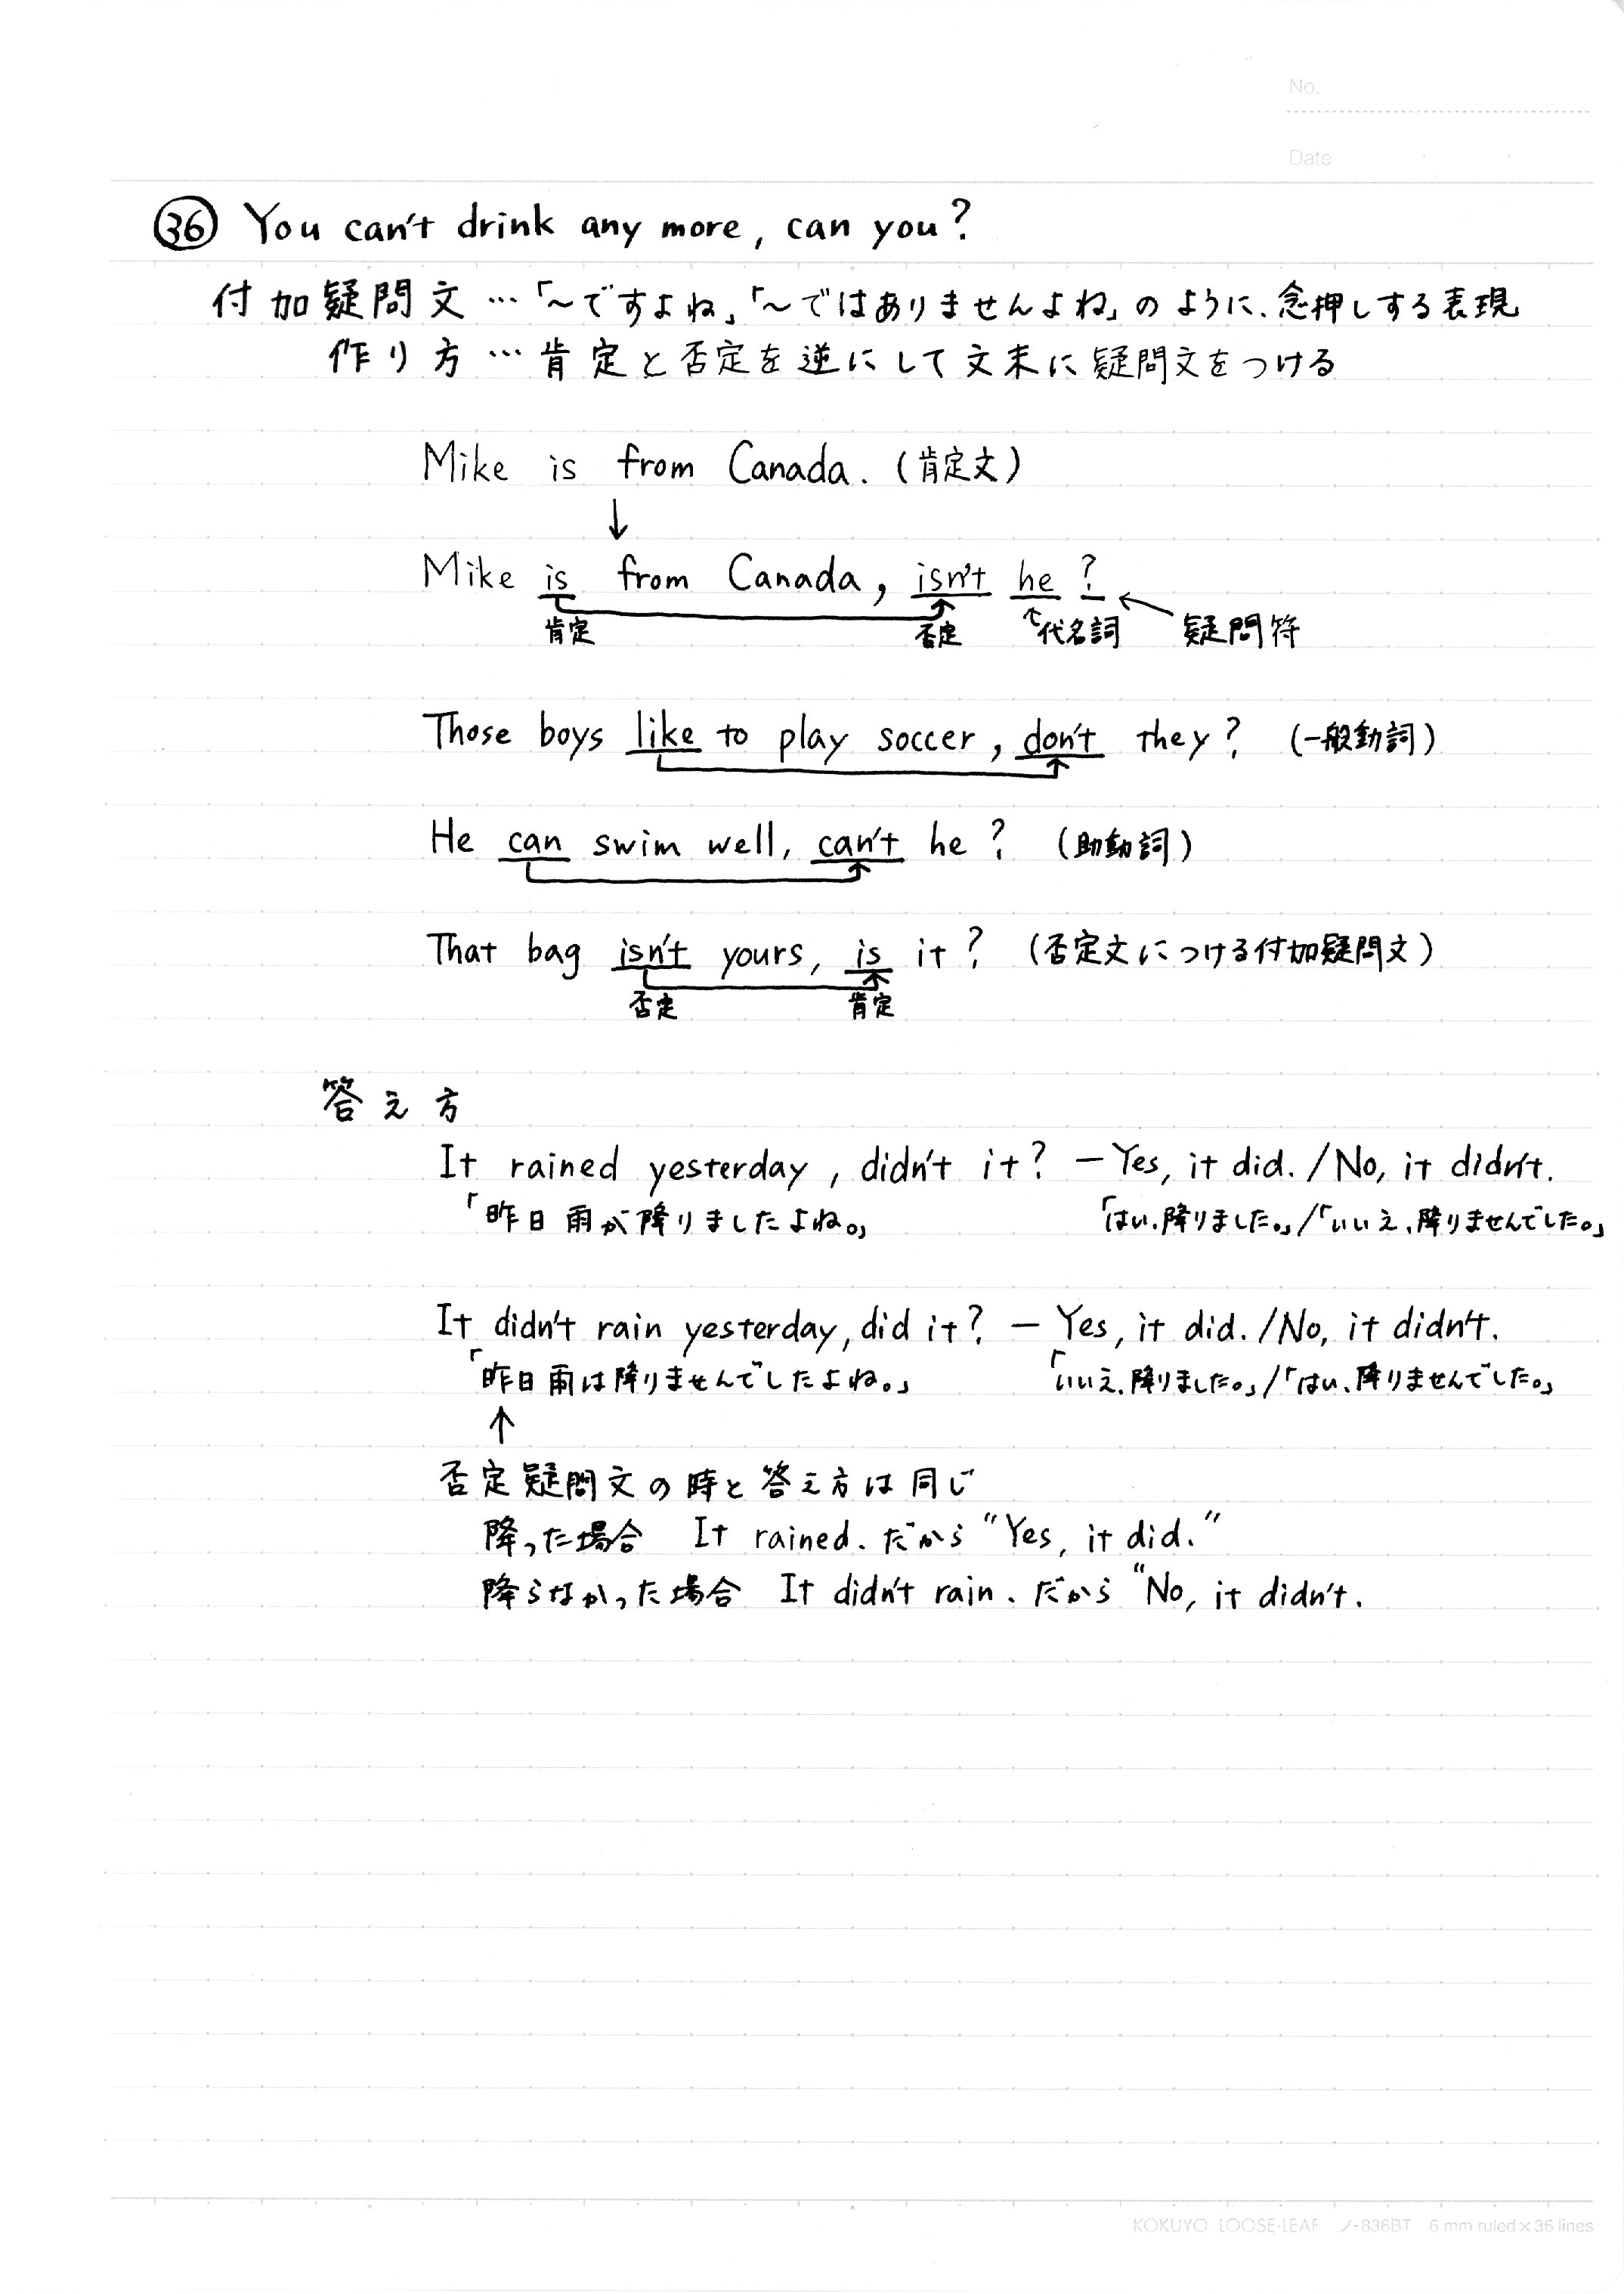 No.
Date
㊱ You can't drink any more, can you?
付加疑問文…「〜ですよね」「〜ではありませんよね」のように、念押しする表現
作り方…肯定と否定を逆にして文末に疑問文をつける
Mike is from Canada. (肯定文)
↓
Mike is from Canada, isn't he?
肯定 否定 ↑代名詞 疑問符
Those boys like to play soccer, don't they? (一般動詞)
He can swim well, can't he? (助動詞)
That bag isn't yours, is it? (否定文につける付加疑問文)
否定 肯定
答え方
It rained yesterday, didn't it? — Yes, it did. / No, it didn't.
「昨日雨が降りましたよね。」 「はい、降りました。」/「いいえ、降りませんでした。」
It didn't rain yesterday, did it? — Yes, it did. / No, it didn't.
「昨日雨は降りませんでしたよね。」 「いいえ、降りました。」/「はい、降りませんでした。」
↑
否定疑問文の時と答え方は同じ
降った場合 It rained. だから "Yes, it did."
降らなかった場合 It didn't rain. だから "No, it didn't.
KOKUYO LOOSE-LEAF ノ-836BT 6 mm ruled × 36 lines